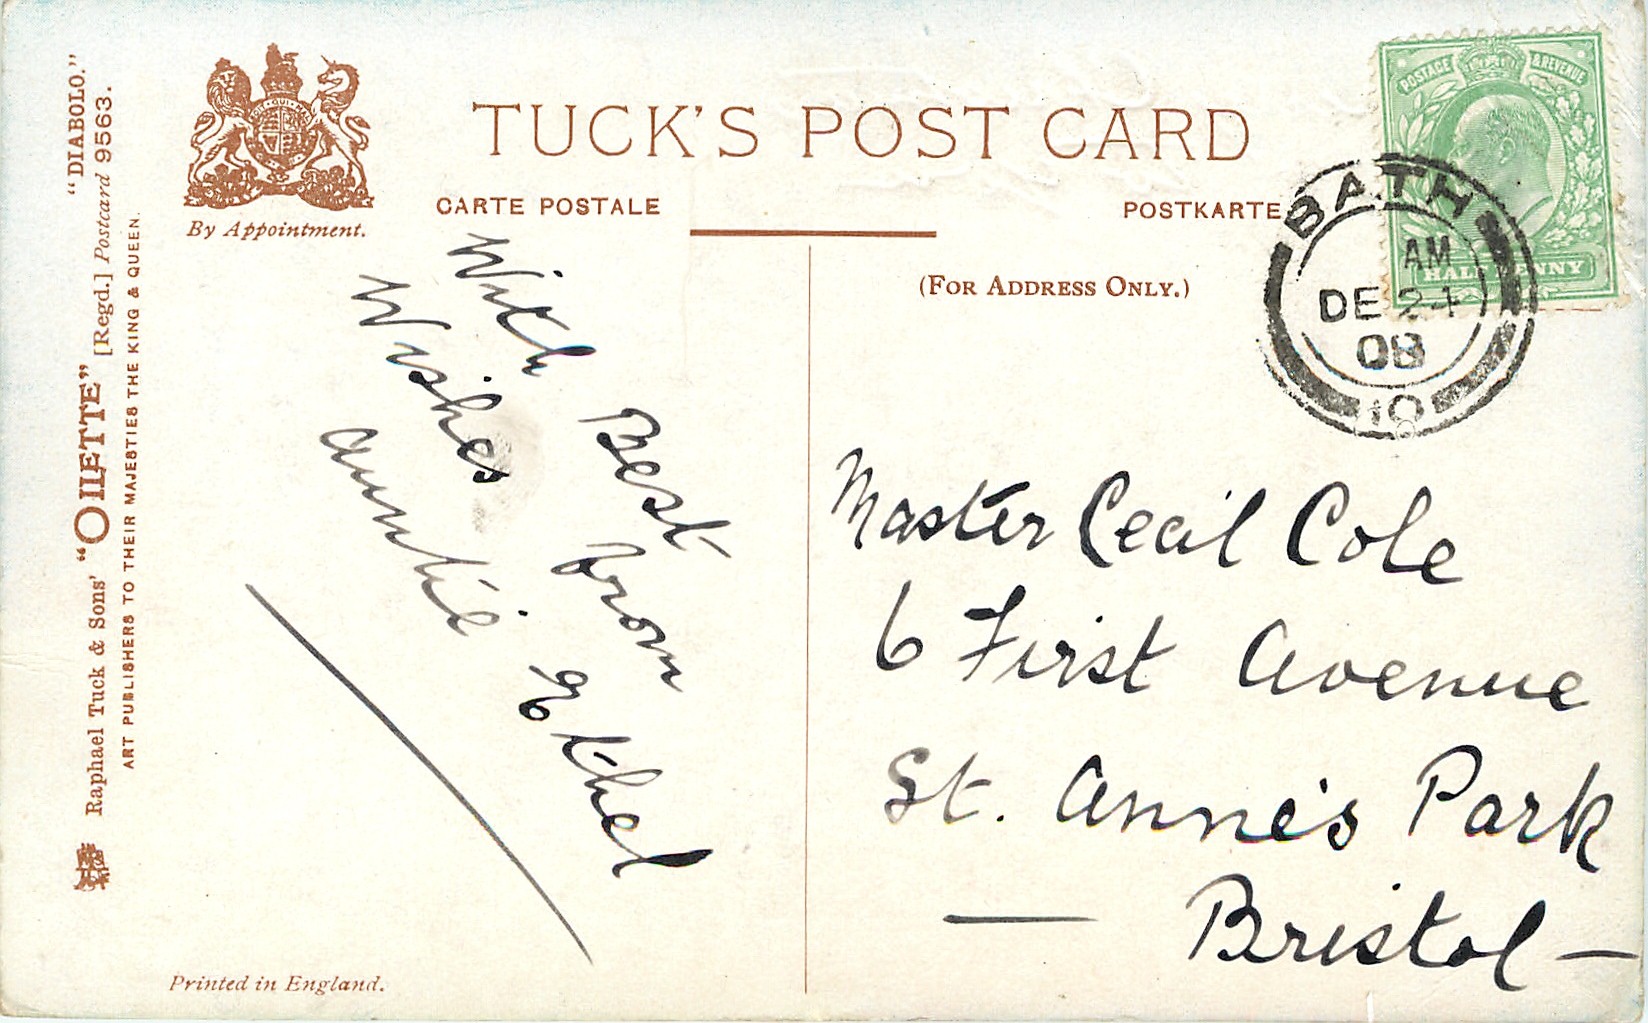 "DIABOLO."
Raphael Tuck & Sons' "OILETTE" [Regd.] Postcard 9563.
ART PUBLISHERS TO THEIR MAJESTIES THE KING & QUEEN.
By Appointment.
TUCK'S POST CARD
CARTE POSTALE
POSTKARTE
(FOR ADDRESS ONLY.)
POSTAGE & REVENUE
HALFPENNY
BATH
AM
DE 24
08
10
With Best
Wishes from
auntie Ethel
Master Cecil Cole
6 First Avenue
St. Anne's Park
Bristol
Printed in England.